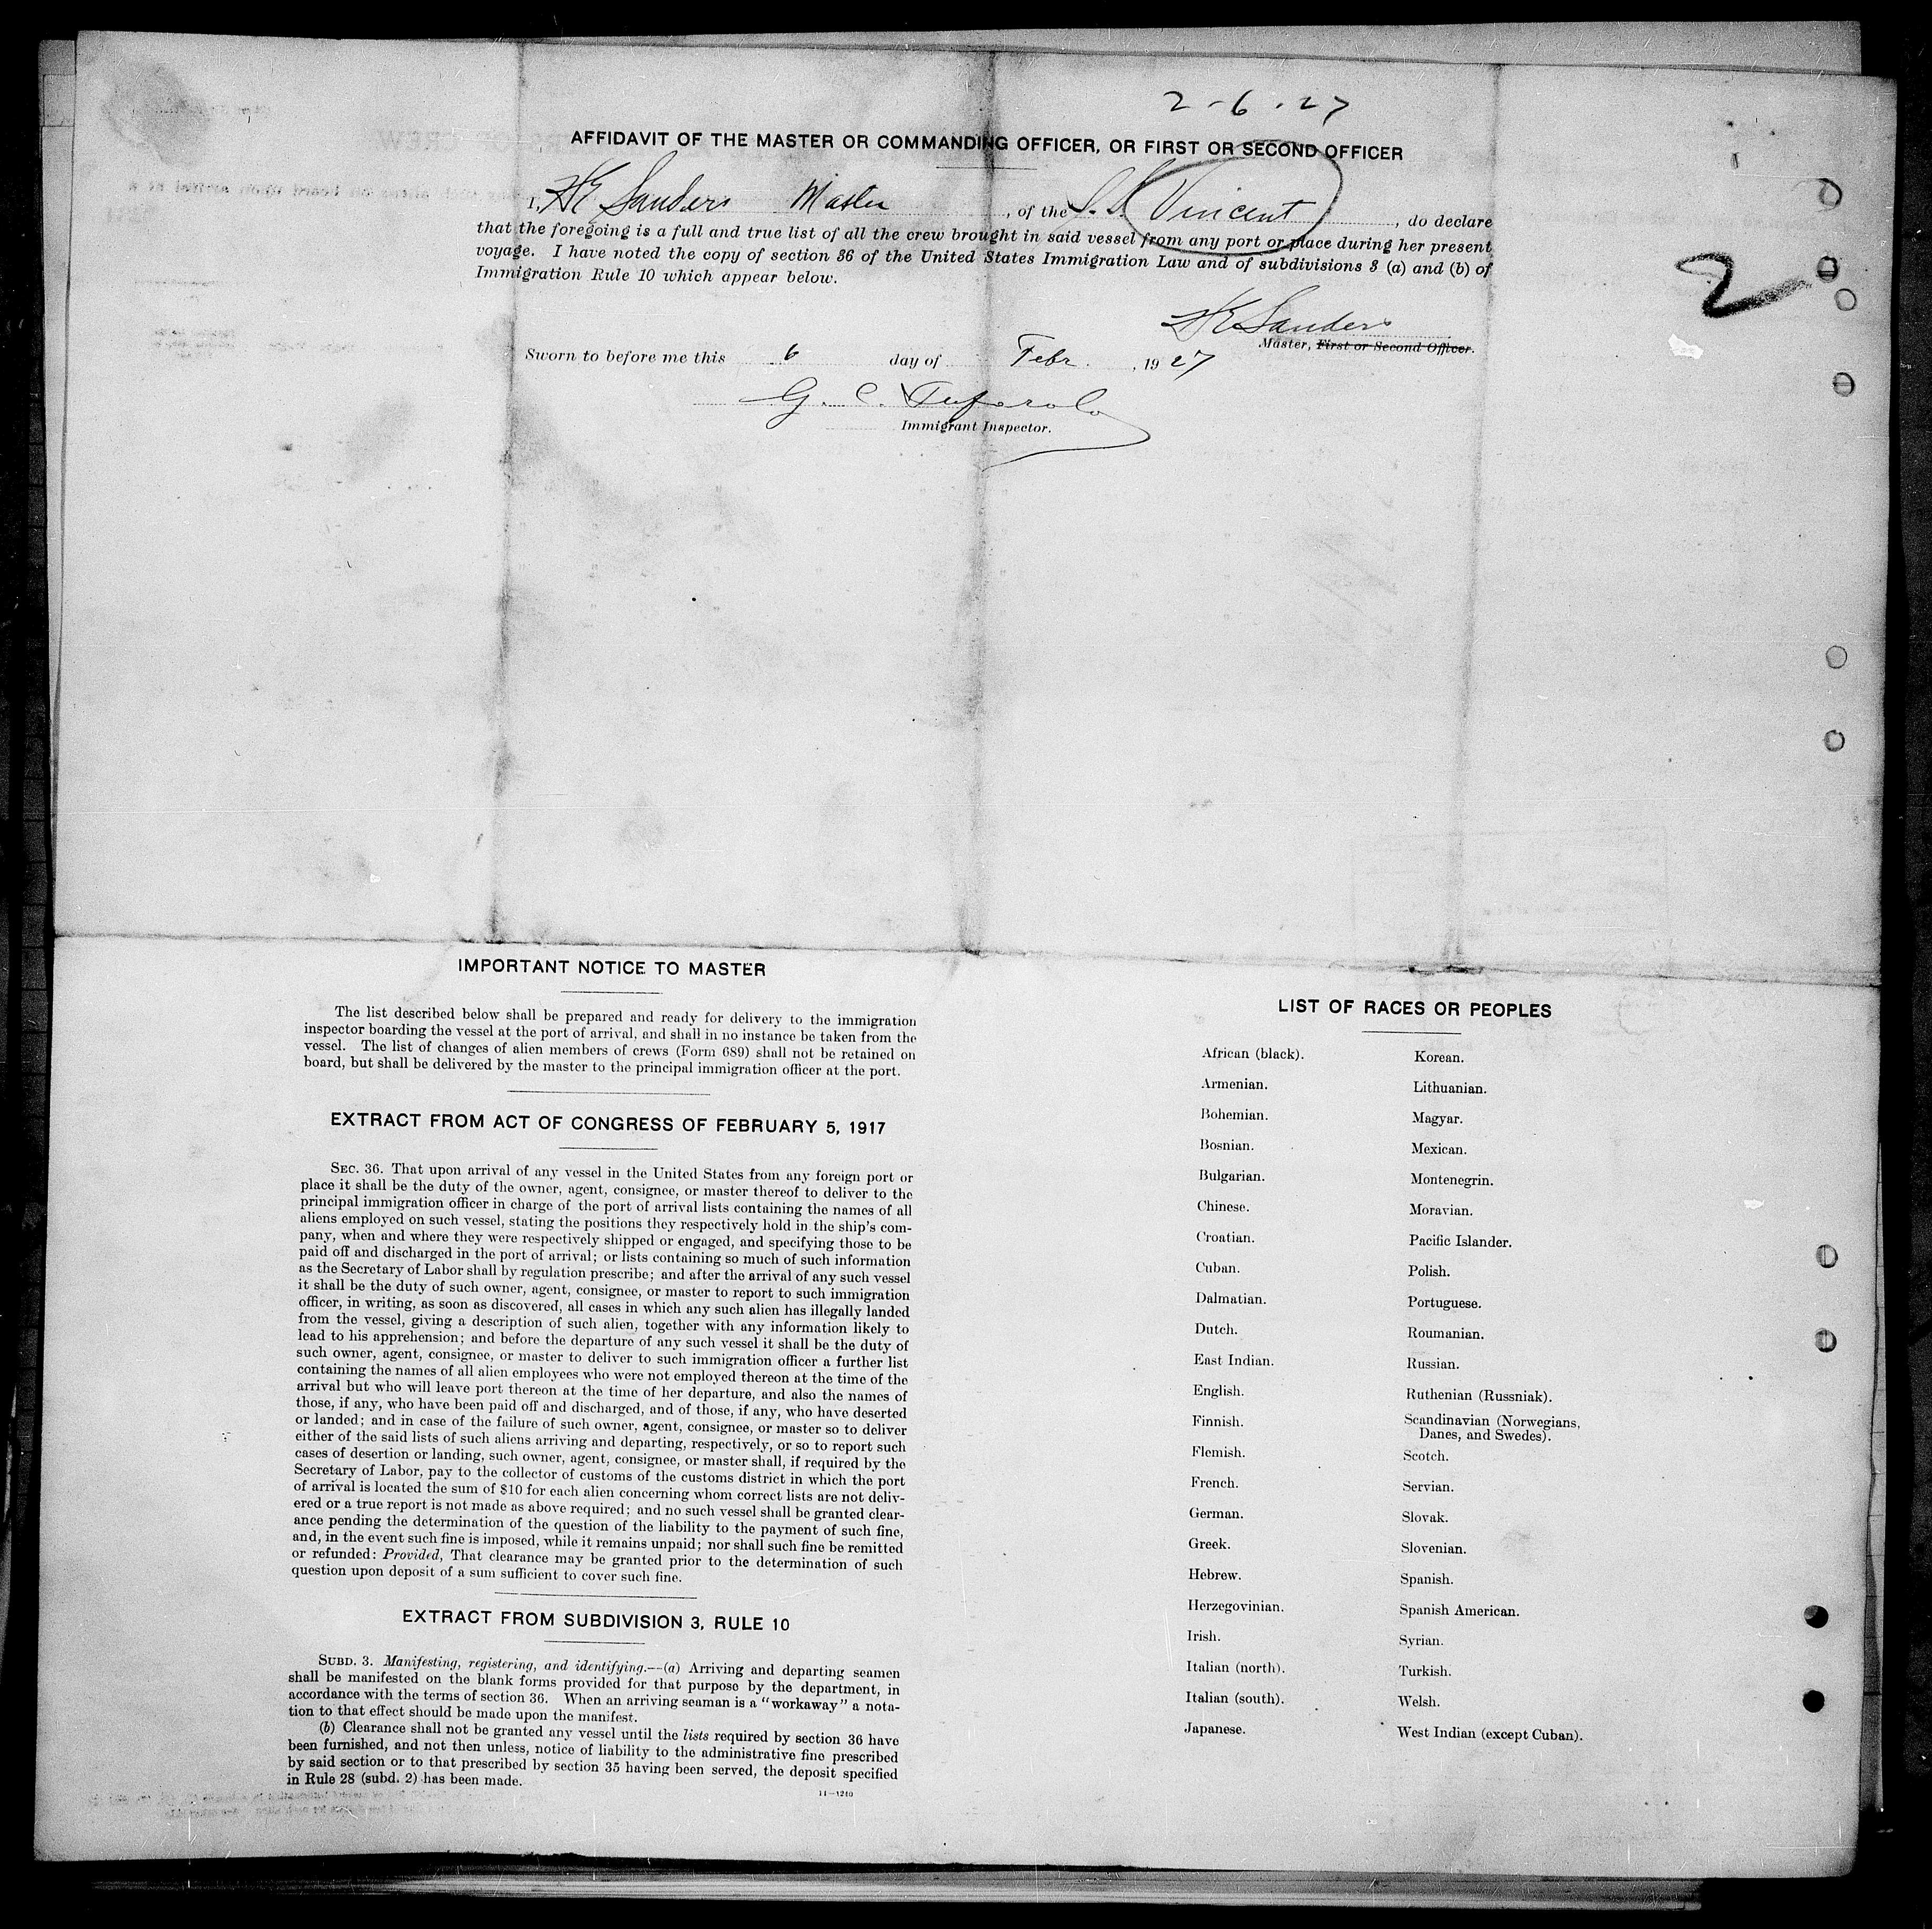 2-6-27
AFFIDAVIT OF THE MASTER OR COMMANDING OFFICER, OR FIRST OR SECOND OFFICER
I, HE Sanders Master, of the S.S. Vincent, do declare
that the foregoing is a full and true list of all the crew brought in said vessel from any port or place during her present
voyage. I have noted the copy of section 36 of the United States Immigration Law and of subdivisions 3 (a) and (b) of
Immigration Rule 10 which appear below.
2
HE Sanders
Master, First or Second Officer.
Sworn to before me this 6 day of Febr., 1927
G. C.
Immigrant Inspector.
IMPORTANT NOTICE TO MASTER
The list described below shall be prepared and ready for delivery to the immigration
inspector boarding the vessel at the port of arrival, and shall in no instance be taken from the
vessel. The list of changes of alien members of crews (Form 689) shall not be retained on
board, but shall be delivered by the master to the principal immigration officer at the port.
EXTRACT FROM ACT OF CONGRESS OF FEBRUARY 5, 1917
SEC. 36. That upon arrival of any vessel in the United States from any foreign port or
place it shall be the duty of the owner, agent, consignee, or master thereof to deliver to the
principal immigration officer in charge of the port of arrival lists containing the names of all
aliens employed on such vessel, stating the positions they respectively hold in the ship's com-
pany, when and where they were respectively shipped or engaged, and specifying those to be
paid off and discharged in the port of arrival; or lists containing so much of such information
as the Secretary of Labor shall by regulation prescribe; and after the arrival of any such vessel
it shall be the duty of such owner, agent, consignee, or master to report to such immigration
officer, in writing, as soon as discovered, all cases in which any such alien has illegally landed
from the vessel, giving a description of such alien, together with any information likely to
lead to his apprehension; and before the departure of any such vessel it shall be the duty of
such owner, agent, consignee, or master to deliver to such immigration officer a further list
containing the names of all alien employees who were not employed thereon at the time of the
arrival but who will leave port thereon at the time of her departure, and also the names of
those, if any, who have been paid off and discharged, and of those, if any, who have deserted
or landed; and in case of the failure of such owner, agent, consignee, or master so to deliver
either of the said lists of such aliens arriving and departing, respectively, or so to report such
cases of desertion or landing, such owner, agent, consignee, or master shall, if required by the
Secretary of Labor, pay to the collector of customs of the customs district in which the port
of arrival is located the sum of $10 for each alien concerning whom correct lists are not deliv-
ered or a true report is not made as above required; and no such vessel shall be granted clear-
ance pending the determination of the question of the liability to the payment of such fine,
and, in the event such fine is imposed, while it remains unpaid; nor shall such fine be remitted
or refunded: Provided, That clearance may be granted prior to the determination of such
question upon deposit of a sum sufficient to cover such fine.
EXTRACT FROM SUBDIVISION 3, RULE 10
SUBD. 3. Manifesting, registering, and identifying.—(a) Arriving and departing seamen
shall be manifested on the blank forms provided for that purpose by the department, in
accordance with the terms of section 36. When an arriving seaman is a "workaway" a nota-
tion to that effect should be made upon the manifest.
(b) Clearance shall not be granted any vessel until the lists required by section 36 have
been furnished, and not then unless, notice of liability to the administrative fine prescribed
by said section or to that prescribed by section 35 having been served, the deposit specified
in Rule 28 (subd. 2) has been made.
11—1240
LIST OF RACES OR PEOPLES
African (black).
Armenian.
Bohemian.
Bosnian.
Bulgarian.
Chinese.
Croatian.
Cuban.
Dalmatian.
Dutch.
East Indian.
English.
Finnish.
Flemish.
French.
German.
Greek.
Hebrew.
Herzegovinian.
Irish.
Italian (north).
Italian (south).
Japanese.
Korean.
Lithuanian.
Magyar.
Mexican.
Montenegrin.
Moravian.
Pacific Islander.
Polish.
Portuguese.
Roumanian.
Russian.
Ruthenian (Russniak).
Scandinavian (Norwegians,
Danes, and Swedes).
Scotch.
Servian.
Slovak.
Slovenian.
Spanish.
Spanish American.
Syrian.
Turkish.
Welsh.
West Indian (except Cuban).